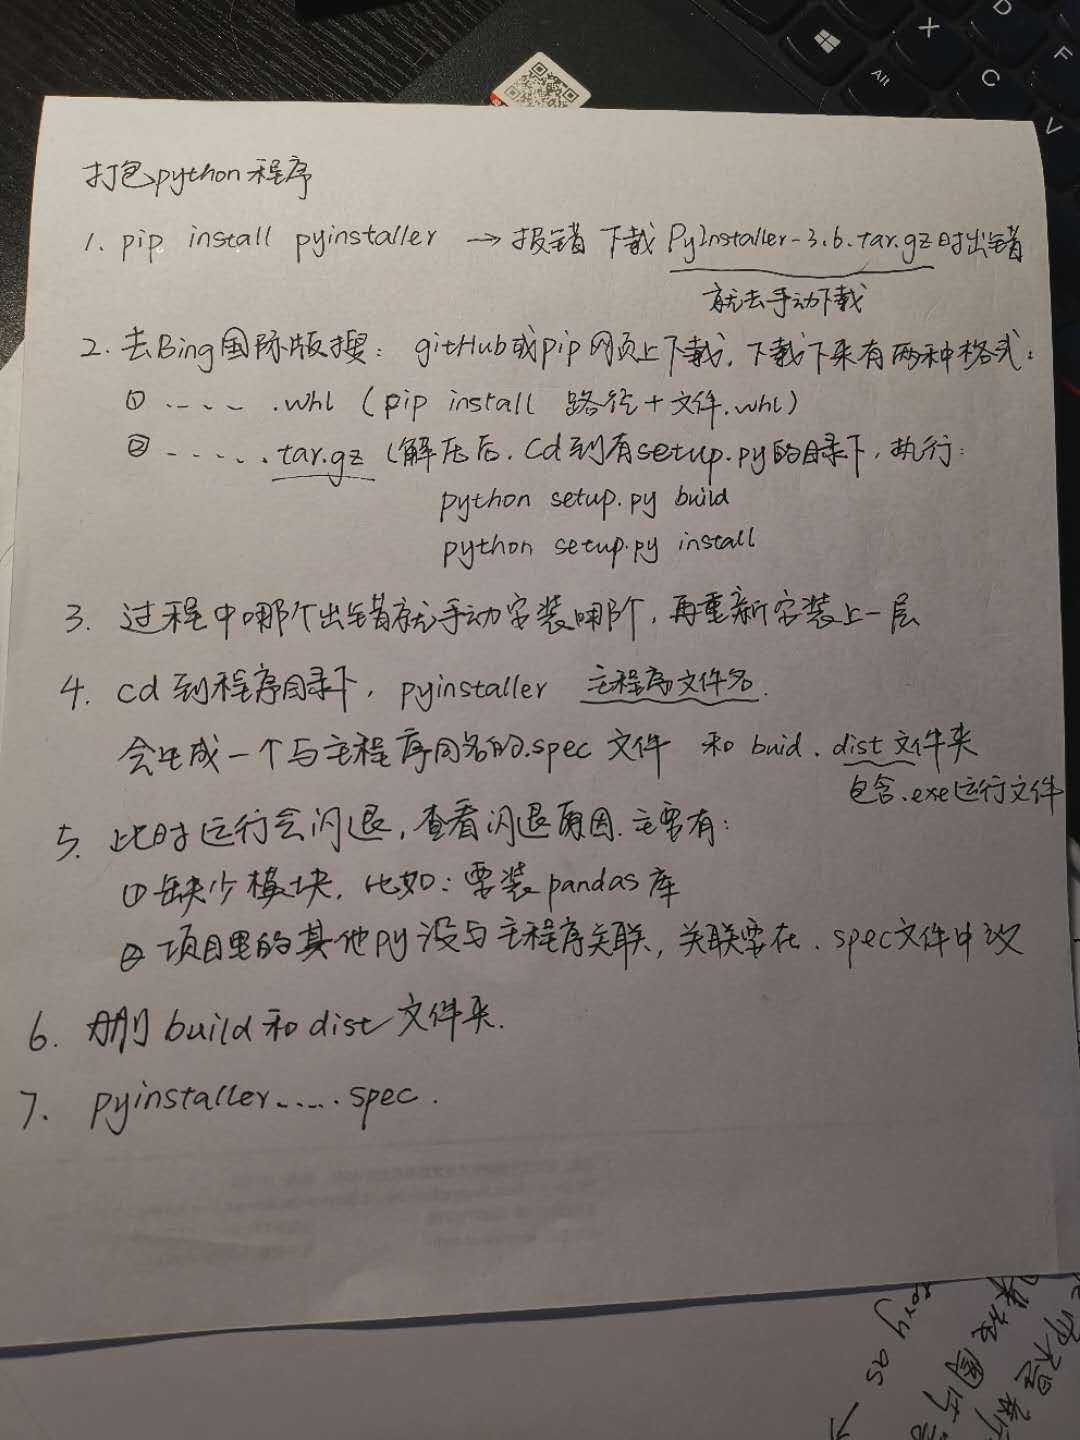 打包python程序
1. pip install pyinstaller → 报错 下载 PyInstaller-3.6.tar.gz时出错
就去手动下载
2. 去Bing国际版搜: gitHub或pip网页上下载, 下载下来有两种格式:
① ..... .whl (pip install 路径+文件.whl)
② ...... tar.gz (解压后, cd到有setup.py的目录下, 执行:
python setup.py build
python setup.py install
3. 过程中哪个出错就手动安装哪个, 再重新安装上一层
4. cd 到程序目录下, pyinstaller 主程序文件名.
会生成一个与主程序同名的.spec 文件 和 buid、dist文件夹
包含.exe运行文件
5. 此时运行会闪退, 查看闪退原因. 主要有:
①缺少模块, 比如: 要装pandas库
② 项目里的其他py没与主程序关联, 关联要在.spec文件中改
6. 删 build和dist文件夹.
7. pyinstaller.....spec.
Alt
X
D
C
F
V